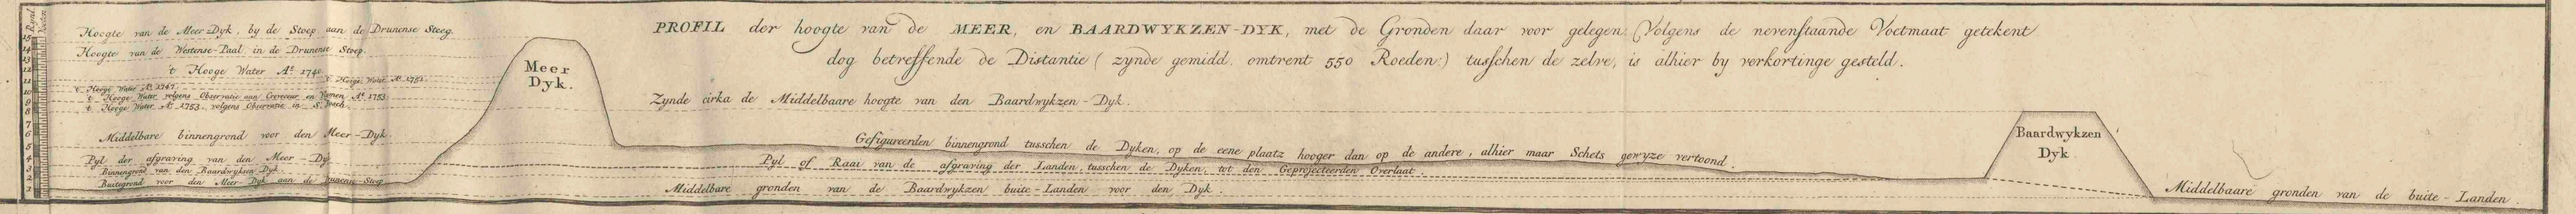 Rynl. Voeten
15
14
13
12
11
10
9
8
7
6
5
4
3
2
1
Hoogte van de Meer-Dyk, by de Stoep aan de Drunense Steeg.
Hoogte van de Westense-Paal, in de Drunense Stoep.
't Hooge Water Aº. 1740
't Hooge Water Aº. 1751
't Hooge Water Aº. 1747
't Hooge Water volgens Observatie aan Creveceur en Aº. 1753
't Hooge Water Aº. 1753. volgens Observatie in
Middelbare binnengrond voor den Meer-Dyk.
Pyl der afgraving van den Meer-Dyk
Binnengrond van den Baardwyksen Dyk.
Buitegrond voor den Meer-Dyk aan de Drunense-Stoep
Meer
Dyk.
PROFIL der hoogte van de MEER, en BAARDWYKZEN-DYK, met de Gronden daar voor gelegen. (Volgens de nevenstaande Voetmaat getekent
dog betreffende de Distantie ( zynde gemidd. omtrent 550 Roeden:) tusschen de zelve, is alhier by verkortinge gesteld.
Zynde cirka de Middelbaare hoogte van den Baardwykzen-Dyk.
Gefigureerden binnengrond tusschen de Dyken, op de eene plaatz hooger dan op de andere, alhier maar Schets gewyze vertoond.
Pyl of Raai van de afgraving der Landen, tusschen de Dyken, tot den Geprojecteerden Overlaat
Middelbare gronden van de Baardwykzen buite-Landen voor den Dyk.
Baardwykzen
Dyk
Middelbaare gronden van de buite-Landen.